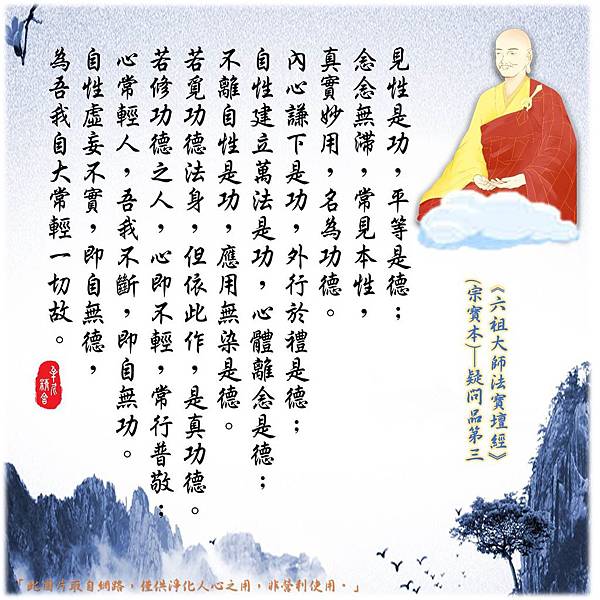 見性是功，平等是德；
念念無滯，常見本性，
真實妙用，名為功德。
內心謙下是功，外行於禮是德；
自性建立萬法是功，心體離念是德；
不離自性是功，應用無染是德。
若覓功德法身，但依此作，是真功德。
若修功德之人，心即不輕，常行普敬；
心常輕人，吾我不斷，即自無功。
自性虛妄不實，即自無德，
為吾我自大常輕一切故。
《六祖大師法寶壇經》
(宗寶本)—疑問品第三
「此圖片取自網路，僅供淨化人心之用，非營利使用。」